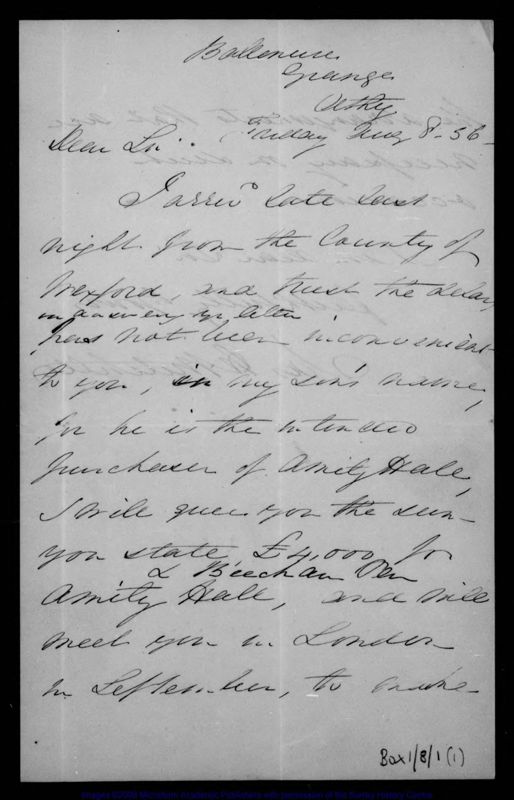 Grange
Athy
Dear Sir. Friday Aug 8 - 56 -
I arrivd late last
night from the County of
Wexford, and trust the delay
in answering yr letter
has not been inconvenient
to you, in my son's name,
for he is the intended
purchaser of Amity Hall,
I will give you the sum
you state £4,000 for
& Beecham Pen
Amity Hall, and will
meet you in London
in September, to make
Box 1/8/1 (1)
Images ©2009 Microform Academic Publishers with permission of the Surrey History Centre